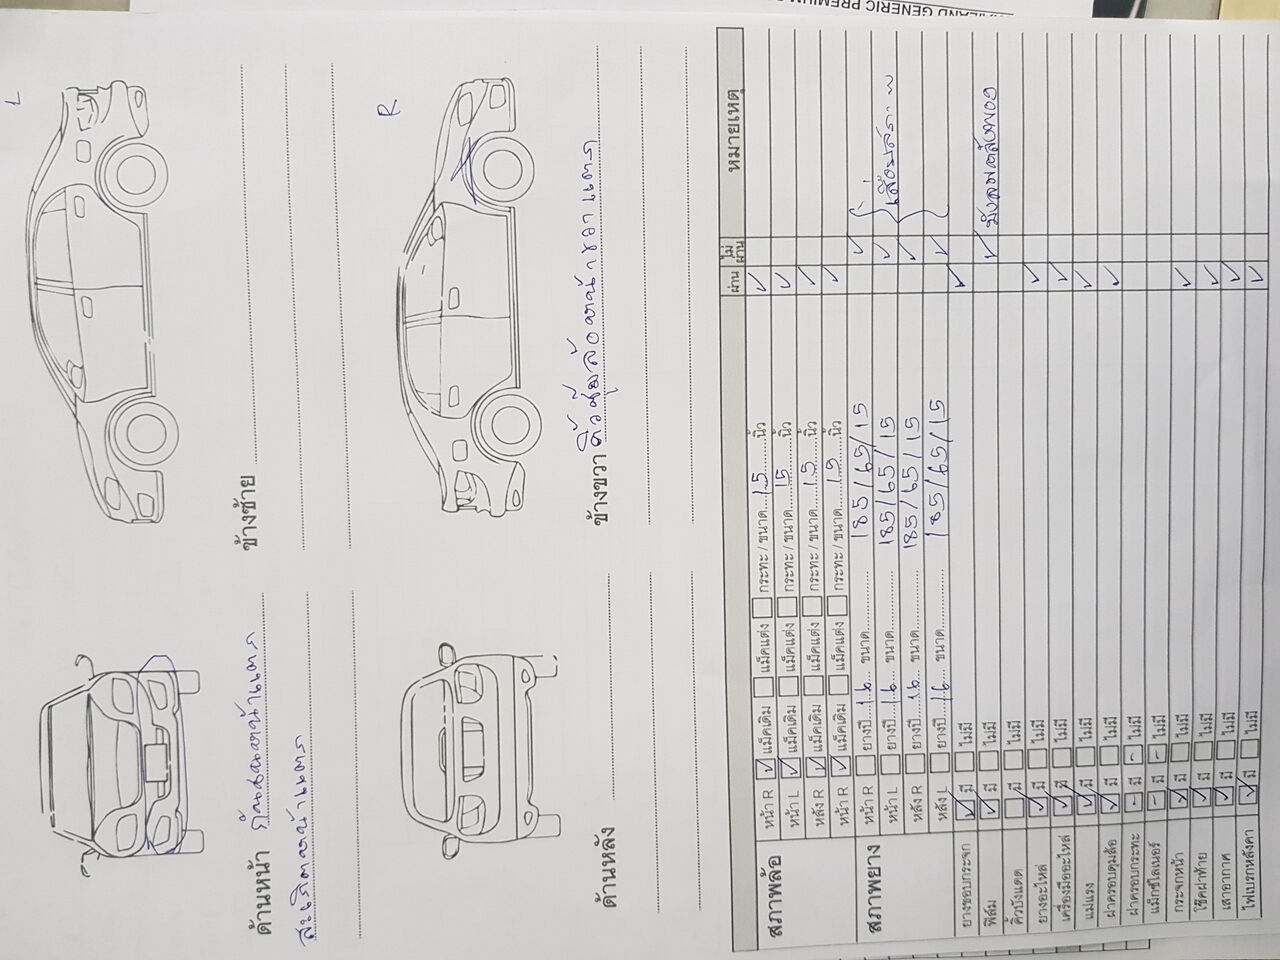 THAILAND GENERIC PREMIUM
L
ด้านหน้า กันชนหน้าแตก
สะเก็ตหน้าแตก
ข้างซ้าย
R
ด้านหลัง
ข้างขวา คิ้วซุ้มล้อหน้าขวาแตก
ผ่าน ไม่ผ่าน หมายเหตุ
สภาพล้อ หน้า R ✓ แม็คเดิม แม็คแต่ง กระทะ / ขนาด 15 นิ้ว ✓
หน้า L ✓ แม็คเดิม แม็คแต่ง กระทะ / ขนาด 15 นิ้ว ✓
หลัง R ✓ แม็คเดิม แม็คแต่ง กระทะ / ขนาด 15 นิ้ว ✓
หน้า R ✓ แม็คเดิม แม็คแต่ง กระทะ / ขนาด 15 นิ้ว ✓
สภาพยาง หน้า R ยางปี 16 ขนาด 185/65/15 ✓
หน้า L ยางปี 16 ขนาด 185/65/15 ✓ เสื่อมสภาพ
หลัง R ยางปี 16 ขนาด 185/65/15 ✓
หลัง L ยางปี 16 ขนาด 185/65/15 ✓
ยางขอบกระจก ✓ มี ไม่มี ✓
ฟิล์ม ✓ มี ไม่มี ✓
คิ้วบังแดด มี ไม่มี
ยางอะไหล่ ✓ มี ไม่มี ✓
เครื่องมืออะไหล่ ✓ มี ไม่มี ✓
แม่แรง ✓ มี ไม่มี ✓
ฝาครอบดุมล้อ ✓ มี ไม่มี ✓
ฝาครอบกระทะ - มี - ไม่มี
แม็กซ์ไลเนอร์ - มี - ไม่มี
กระจกหน้า ✓ มี ไม่มี ✓
โช๊คฝาท้าย ✓ มี ไม่มี ✓
เสาอากาศ ✓ มี ไม่มี ✓
ไฟเบรกหลังคา ✓ มี ไม่มี ✓